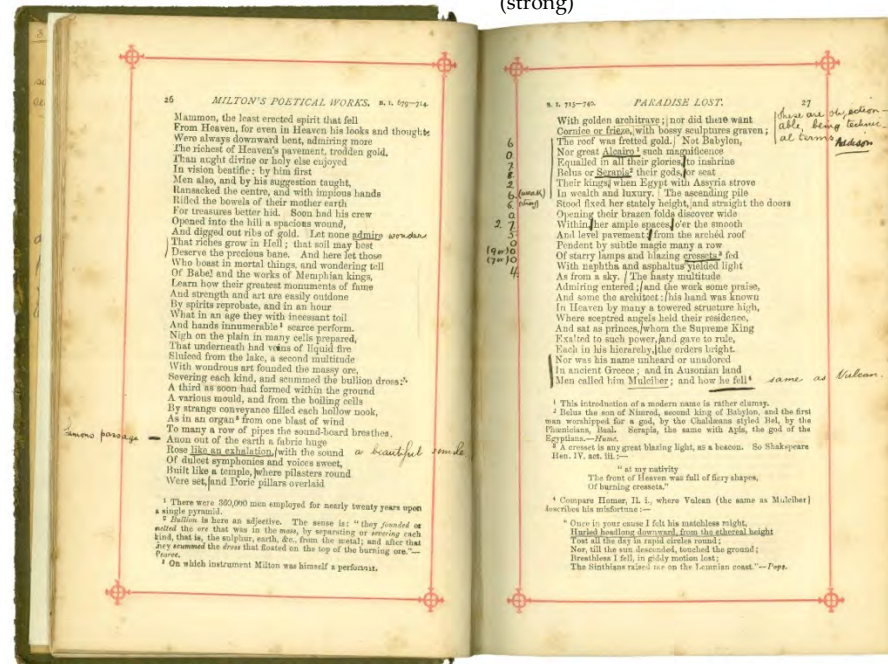 (strong)
26 MILTON'S POETICAL WORKS. B. I. 679—714.
Mammon, the least erected spirit that fell
From Heaven, for even in Heaven his looks and thoughts
Were always downward bent, admiring more
The riches of Heaven's pavement, trodden gold,
Than aught divine or holy else enjoyed
In vision beatific; by him first
Men also, and by his suggestion taught,
Ransacked the centre, and with impious hands
Rifled the bowels of their mother earth
For treasures better hid. Soon had his crew
Opened into the hill a spacious wound,
And digged out ribs of gold. Let none admire wonder
That riches grow in Hell; that soil may best
Deserve the precious bane. And here let those
Who boast in mortal things, and wondering tell
Of Babel and the works of Memphian kings,
Learn how their greatest monuments of fame
And strength and art are easily outdone
By spirits reprobate, and in an hour
What in an age they with incessant toil
And hands innumerable¹ scarce perform.
Nigh on the plain in many cells prepared,
That underneath had veins of liquid fire
Sluiced from the lake, a second multitude
With wondrous art founded the massy ore,
Severing each kind, and scummed the bullion dross;²
A third as soon had formed within the ground
A various mould, and from the boiling cells
By strange conveyance filled each hollow nook,
As in an organ³ from one blast of wind
To many a row of pipes the sound-board breathes.
Famous passage Anon out of the earth a fabric huge
Rose like an exhalation, with the sound a beautiful simile
Of dulcet symphonies and voices sweet,
Built like a temple, where pilasters round
Were set, and Doric pillars overlaid
¹ There were 360,000 men employed for nearly twenty years upon
a single pyramid.
² Bullion is here an adjective. The sense is: "they founded or
melted the ore that was in the mass, by separating or severing each
kind, that is, the sulphur, earth, &c., from the metal; and after that
they scummed the dross that floated on the top of the burning ore."—
Pearce.
³ On which instrument Milton was himself a performer.
B. I. 715—740. PARADISE LOST. 27
With golden architrave; nor did there want
Cornice or frieze, with bossy sculptures graven;
These are objection-
able, being technic-
al terms. Addison
The roof was fretted gold. Not Babylon,
Nor great Alcairo¹ such magnificence
Equalled in all their glories, to inshrine
Belus or Serapis² their gods, or seat
Their kings, when Egypt with Assyria strove
In wealth and luxury. The ascending pile
Stood fixed her stately height, and straight the doors
Opening their brazen folds discover wide
Within, her ample spaces, o'er the smooth
And level pavement: from the archèd roof
Pendent by subtle magic many a row
Of starry lamps and blazing cressets³ fed
With naphtha and asphaltus yielded light
As from a sky. The hasty multitude
Admiring entered; and the work some praise,
And some the architect: his hand was known
In Heaven by many a towered structure high,
Where sceptred angels held their residence,
And sat as princes, whom the Supreme King
Exalted to such power, and gave to rule,
Each in his hierarchy, the orders bright.
Nor was his name unheard or unadored
In ancient Greece; and in Ausonian land
Men called him Mulciber; and how he fell⁴ same as Vulcan.
¹ This introduction of a modern name is rather clumsy.
² Belus the son of Nimrod, second king of Babylon, and the first
man worshipped for a god, by the Chaldæans styled Bel, by the
Phœnicians, Baal. Serapis, the same with Apis, the god of the
Egyptians.—Hume.
³ A cresset is any great blazing light, as a beacon. So Shakspeare
Hen. IV. act. iii.:—
"at my nativity
The front of Heaven was full of fiery shapes,
Of burning cressets."
⁴ Compare Homer, Il. i., where Vulcan (the same as Mulciber)
describes his misfortune:—
"Once in your cause I felt his matchless might,
Hurled headlong downward, from the ethereal height
Tost all the day in rapid circles round;
Nor, till the sun descended, touched the ground;
Breathless I fell, in giddy motion lost;
The Sinthians raised me on the Lemnian coast."—Pope.